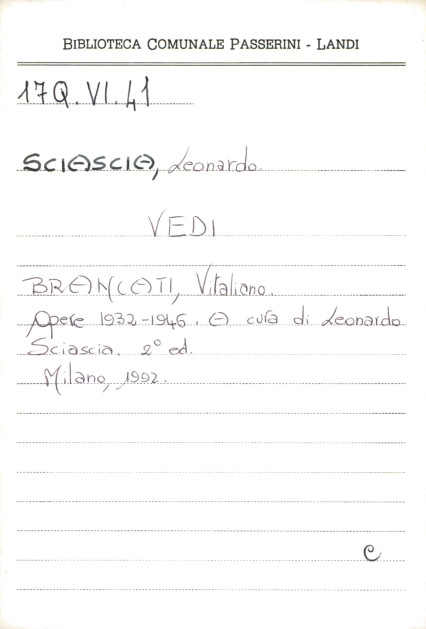 BIBLIOTECA COMUNALE PASSERINI - LANDI
17Q.VI.41
SCIASCIA, Leonardo.
VEDI
BRANCATI, Vitaliano.
Opere 1932-1946. A cura di Leonardo
Sciascia. 2° ed.
Milano, 1992.
C